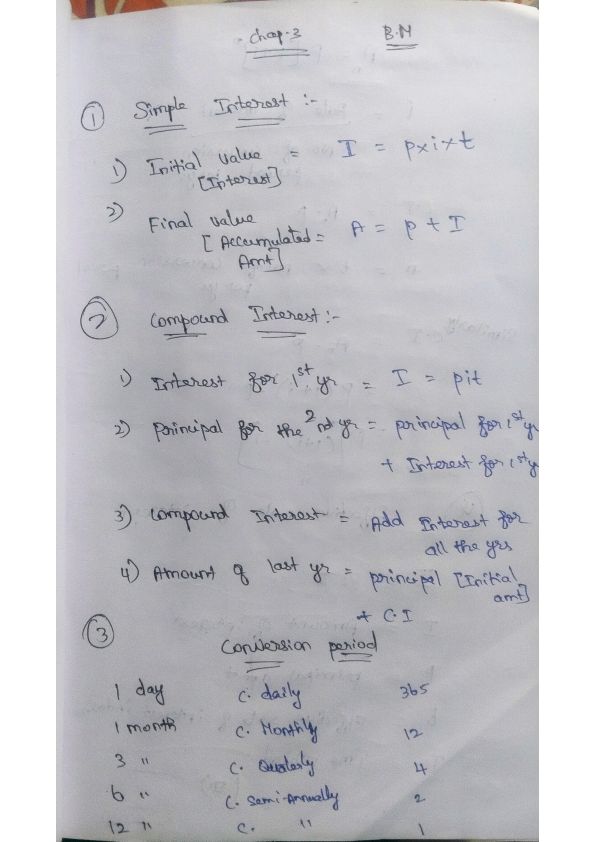 Chap-3 B.M
① Simple Interest :-
1) Initial value = I = p×i×t
[Interest]
2) Final value
[Accumulated = A = p + I
Amt]
② Compound Interest :-
1) Interest for 1st yr = I = pit
2) principal for the 2nd yr = principal for 1st yr
+ Interest for 1st y
3) Compound Interest = Add Interest for
all the yrs
4) Amount of last yr = principal [Initial
amt]
+ C.I
③ Conversion period
1 day C. daily 365
1 month C. Monthly 12
3 " C. Quaterly 4
6 " C. Semi-Annually 2
12 " C. " 1